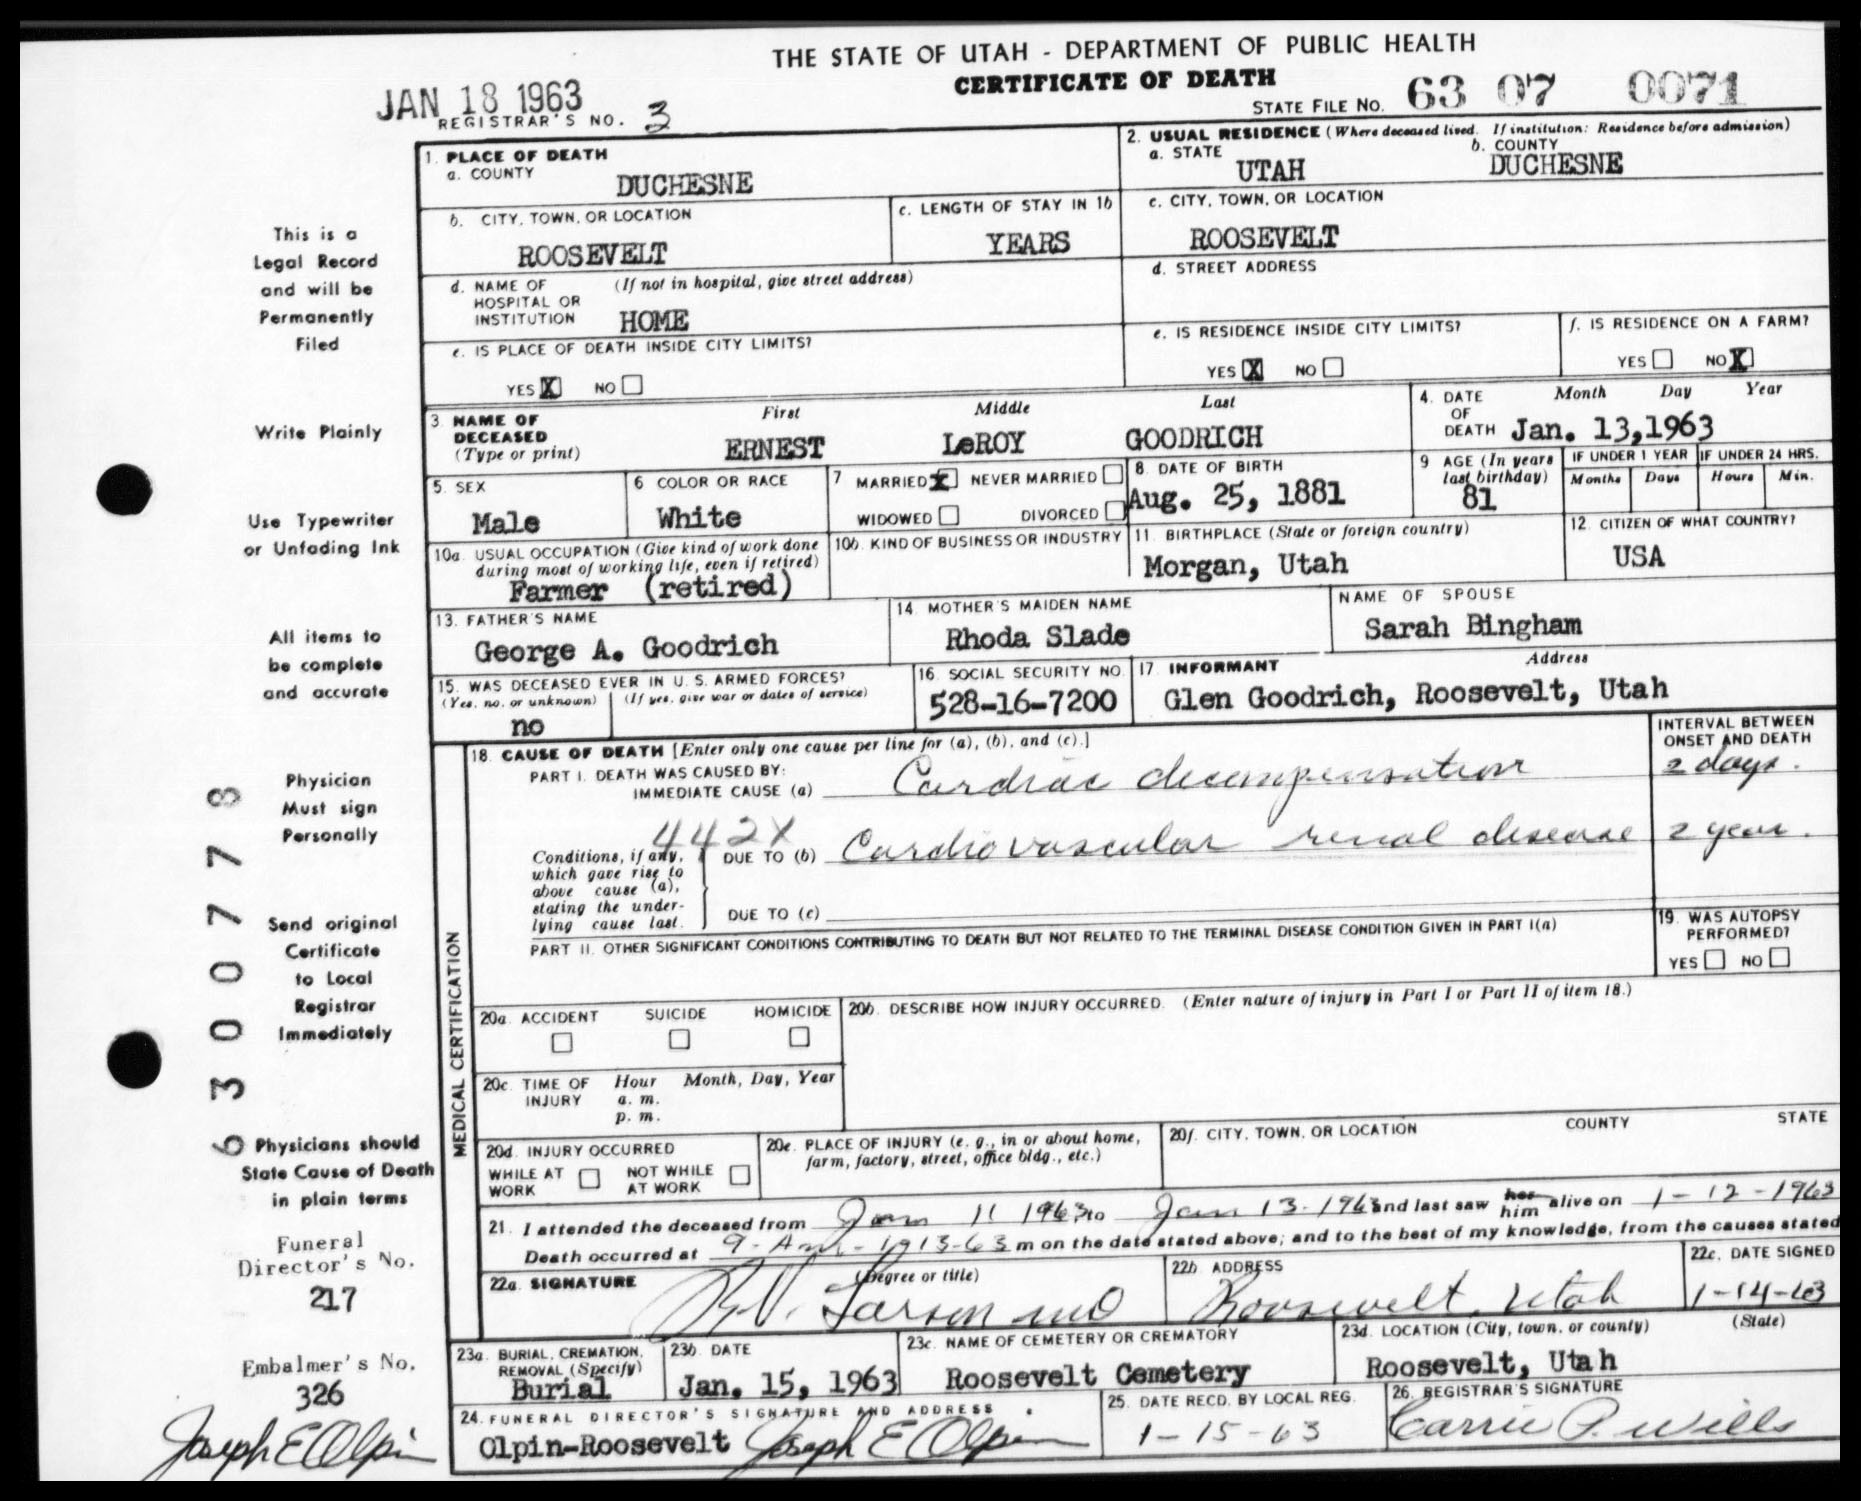 THE STATE OF UTAH - DEPARTMENT OF PUBLIC HEALTH
CERTIFICATE OF DEATH
JAN 18 1963
REGISTRAR'S NO. 3
STATE FILE NO. 63 07 0071
1. PLACE OF DEATH
a. COUNTY
DUCHESNE
2. USUAL RESIDENCE (Where deceased lived. If institution: Residence before admission)
a. STATE
UTAH
b. COUNTY
DUCHESNE
b. CITY, TOWN, OR LOCATION
ROOSEVELT
c. LENGTH OF STAY IN 1b
YEARS
c. CITY, TOWN, OR LOCATION
ROOSEVELT
d. NAME OF HOSPITAL OR INSTITUTION
(If not in hospital, give street address)
HOME
d. STREET ADDRESS
e. IS PLACE OF DEATH INSIDE CITY LIMITS?
YES X NO
e. IS RESIDENCE INSIDE CITY LIMITS?
YES X NO
f. IS RESIDENCE ON A FARM?
YES NO X
3. NAME OF DECEASED
(Type or print)
First Middle Last
ERNEST LeROY GOODRICH
4. DATE OF DEATH
Month Day Year
Jan. 13,1963
5. SEX
Male
6 COLOR OR RACE
White
7 MARRIED X NEVER MARRIED
WIDOWED DIVORCED
8. DATE OF BIRTH
Aug. 25, 1881
9 AGE (In years last birthday)
81
IF UNDER 1 YEAR
Months Days
IF UNDER 24 HRS.
Hours Min.
10a. USUAL OCCUPATION (Give kind of work done during most of working life, even if retired)
Farmer (retired)
10b. KIND OF BUSINESS OR INDUSTRY
11. BIRTHPLACE (State or foreign country)
Morgan, Utah
12. CITIZEN OF WHAT COUNTRY?
USA
13. FATHER'S NAME
George A. Goodrich
14. MOTHER'S MAIDEN NAME
Rhoda Slade
NAME OF SPOUSE
Sarah Bingham
15. WAS DECEASED EVER IN U. S. ARMED FORCES?
(Yes, no, or unknown) (If yes, give war or dates of service)
no
16. SOCIAL SECURITY NO.
528-16-7200
17. INFORMANT Address
Glen Goodrich, Roosevelt, Utah
18. CAUSE OF DEATH [Enter only one cause per line for (a), (b), and (c).]
INTERVAL BETWEEN ONSET AND DEATH
PART I. DEATH WAS CAUSED BY:
IMMEDIATE CAUSE (a) Cardiac decompensation 2 days.
442X
Conditions, if any, which gave rise to above cause (a), stating the underlying cause last.
DUE TO (b) Cardiovascular renal disease 2 year.
DUE TO (c)
PART II. OTHER SIGNIFICANT CONDITIONS CONTRIBUTING TO DEATH BUT NOT RELATED TO THE TERMINAL DISEASE CONDITION GIVEN IN PART I(a)
19. WAS AUTOPSY PERFORMED?
YES NO
MEDICAL CERTIFICATION
20a. ACCIDENT SUICIDE HOMICIDE
20b. DESCRIBE HOW INJURY OCCURRED. (Enter nature of injury in Part I or Part II of item 18.)
20c. TIME OF INJURY
Hour Month, Day, Year
a. m.
p. m.
20d. INJURY OCCURRED
WHILE AT WORK
NOT WHILE AT WORK
20e. PLACE OF INJURY (e. g., in or about home, farm, factory, street, office bldg., etc.)
20f. CITY, TOWN, OR LOCATION COUNTY STATE
21. I attended the deceased from Jan 11 1963 to Jan 13-1963 and last saw her him alive on 1-12-1963
Death occurred at 9-Am- 1913-63 m on the date stated above; and to the best of my knowledge, from the causes stated
22a. SIGNATURE (Degree or title)
R.V. Larson MD
22b ADDRESS
Roosevelt, Utah
22c. DATE SIGNED
1-14-63
23a. BURIAL, CREMATION, REMOVAL (Specify)
Burial
23b. DATE
Jan. 15, 1963
23c. NAME OF CEMETERY OR CREMATORY
Roosevelt Cemetery
23d. LOCATION (City, town, or county) (State)
Roosevelt, Utah
24. FUNERAL DIRECTOR'S SIGNATURE AND ADDRESS
Olpin-Roosevelt Joseph E Olpin
25. DATE RECD. BY LOCAL REG.
1-15-63
26. REGISTRAR'S SIGNATURE
Carrie P. Wills
This is a
Legal Record
and will be
Permanently
Filed
Write Plainly
Use Typewriter
or Unfading Ink
All items to
be complete
and accurate
Physician
Must sign
Personally
Send original
Certificate
to Local
Registrar
Immediately
Physicians should
State Cause of Death
in plain terms
6300778
Funeral
Director's No.
217
Embalmer's No.
326
Joseph E Olpin